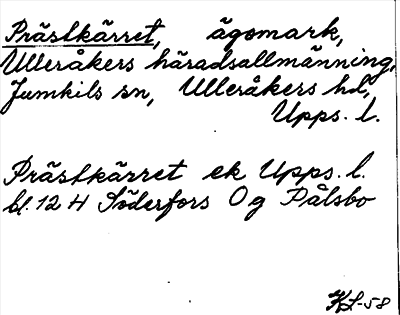 Prästkärret, ägomark,
Ulleråkers häradsallmänning,
Jumkils sn, Ulleråkers hd,
Upps. l.
Prästkärret ek Upps. l.
bl. 12 H Söderfors Og Pålsbo
KL-58